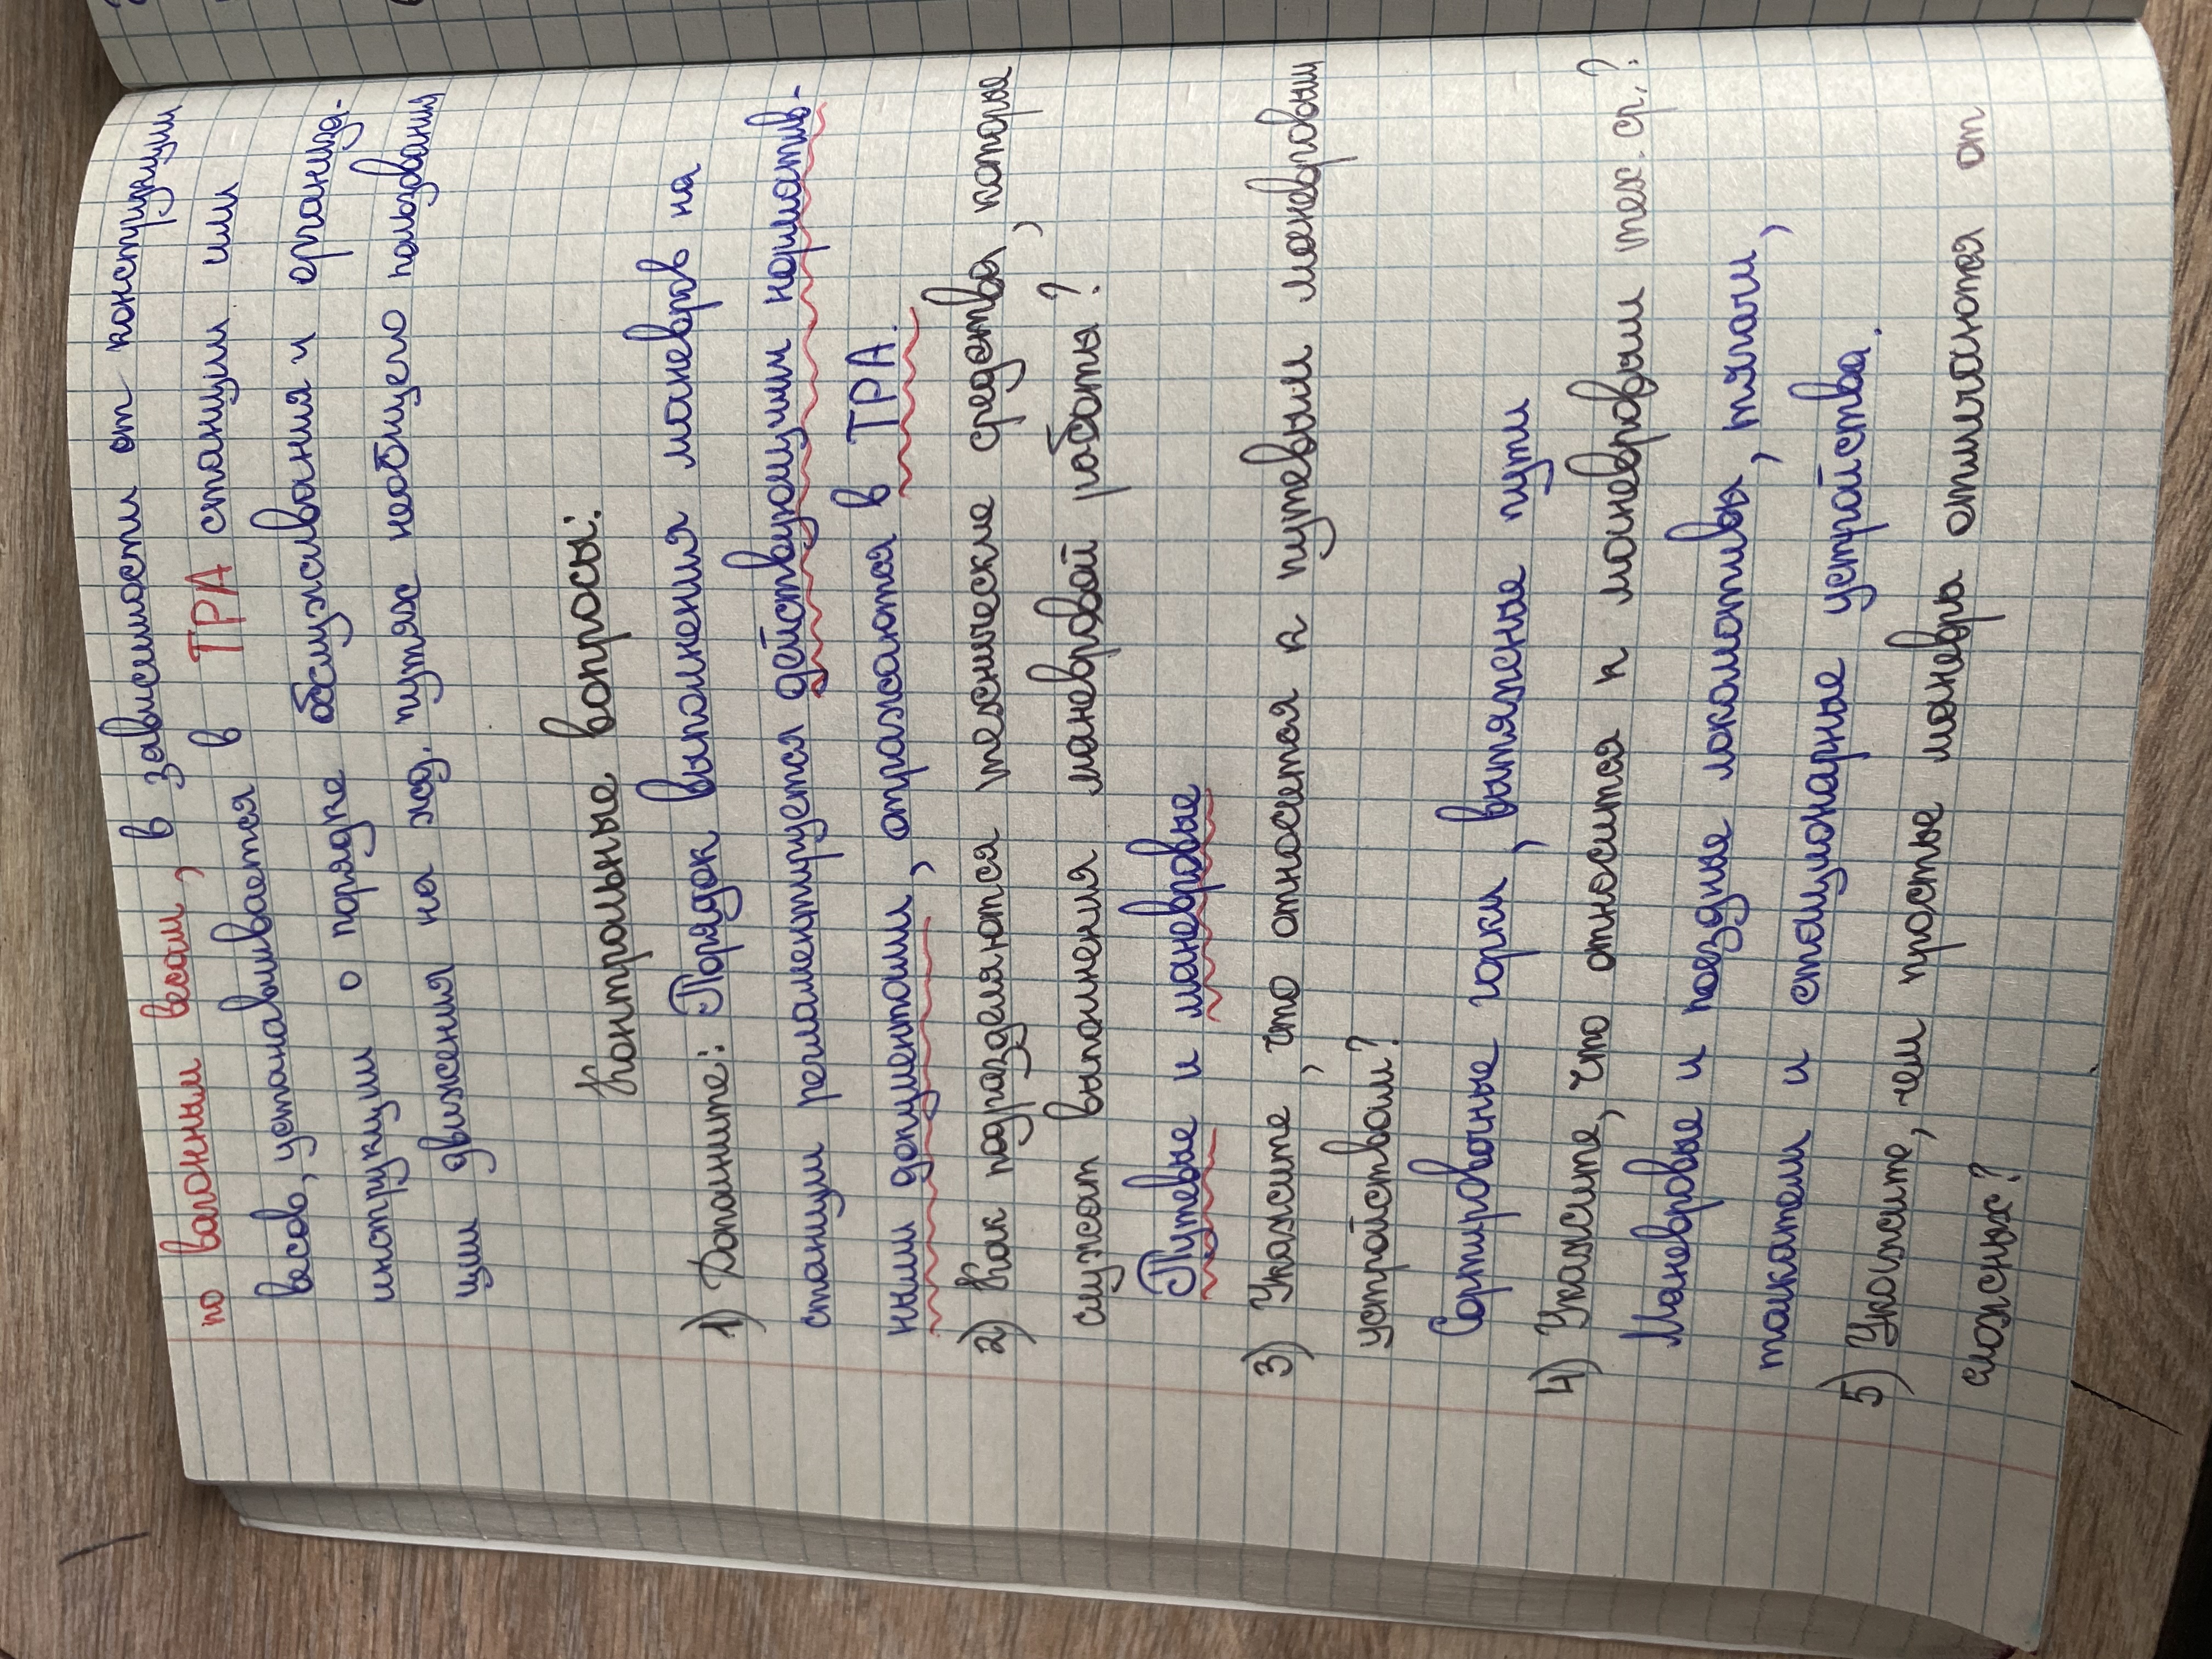 по вагонным весам, в зависимости от конструкции
весов, устанавливается в ТРА станции или
инструкции о порядке обслуживания и организа-
ции движения на жд. путях необщего пользования
Контрольные вопросы:
1) Дополните: Порядок выполнения маневров на
станции регламентируется действующими норматив-
ными документами, отражаются в ТРА.
2) Как подразделяются технические средства, которые
служат выполнения маневровой работы?
Путевые и маневровые
3) Укажите, что относится к путевым маневровым
устройствам?
Сортировочные горки, вытяжные пути
4) Укажите, что относится к маневровым тех. ср.?
Маневровые и поездные локомотивы, тягачи,
толкатели и стационарные устройства.
5) Укажите, чем простые маневры отличаются от
сложных?